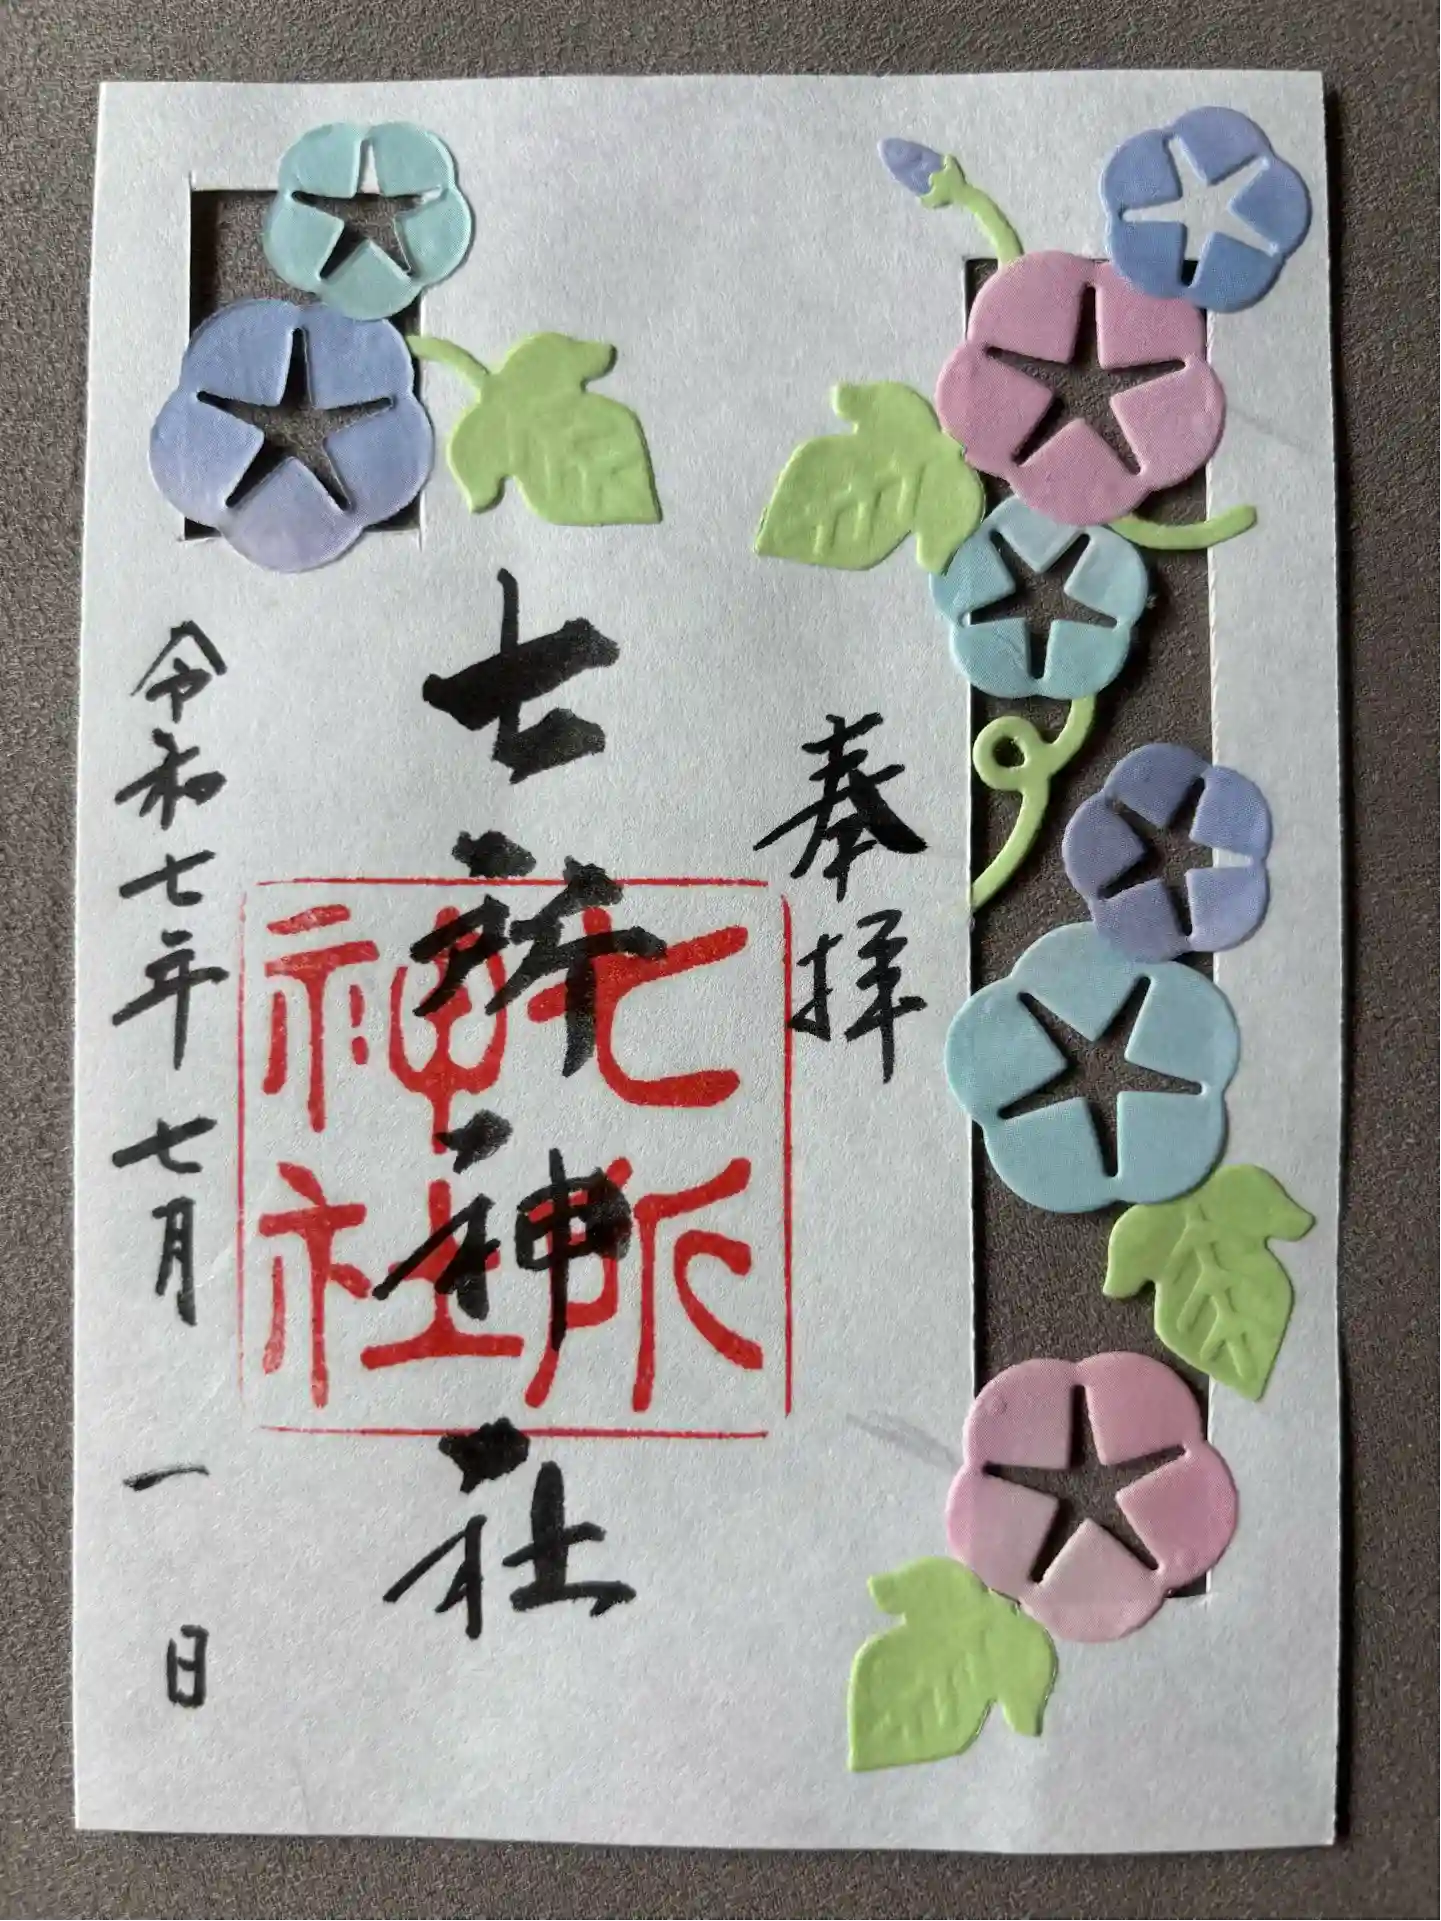 奉拝
七所神社
七所
神社
令和七年七月一日